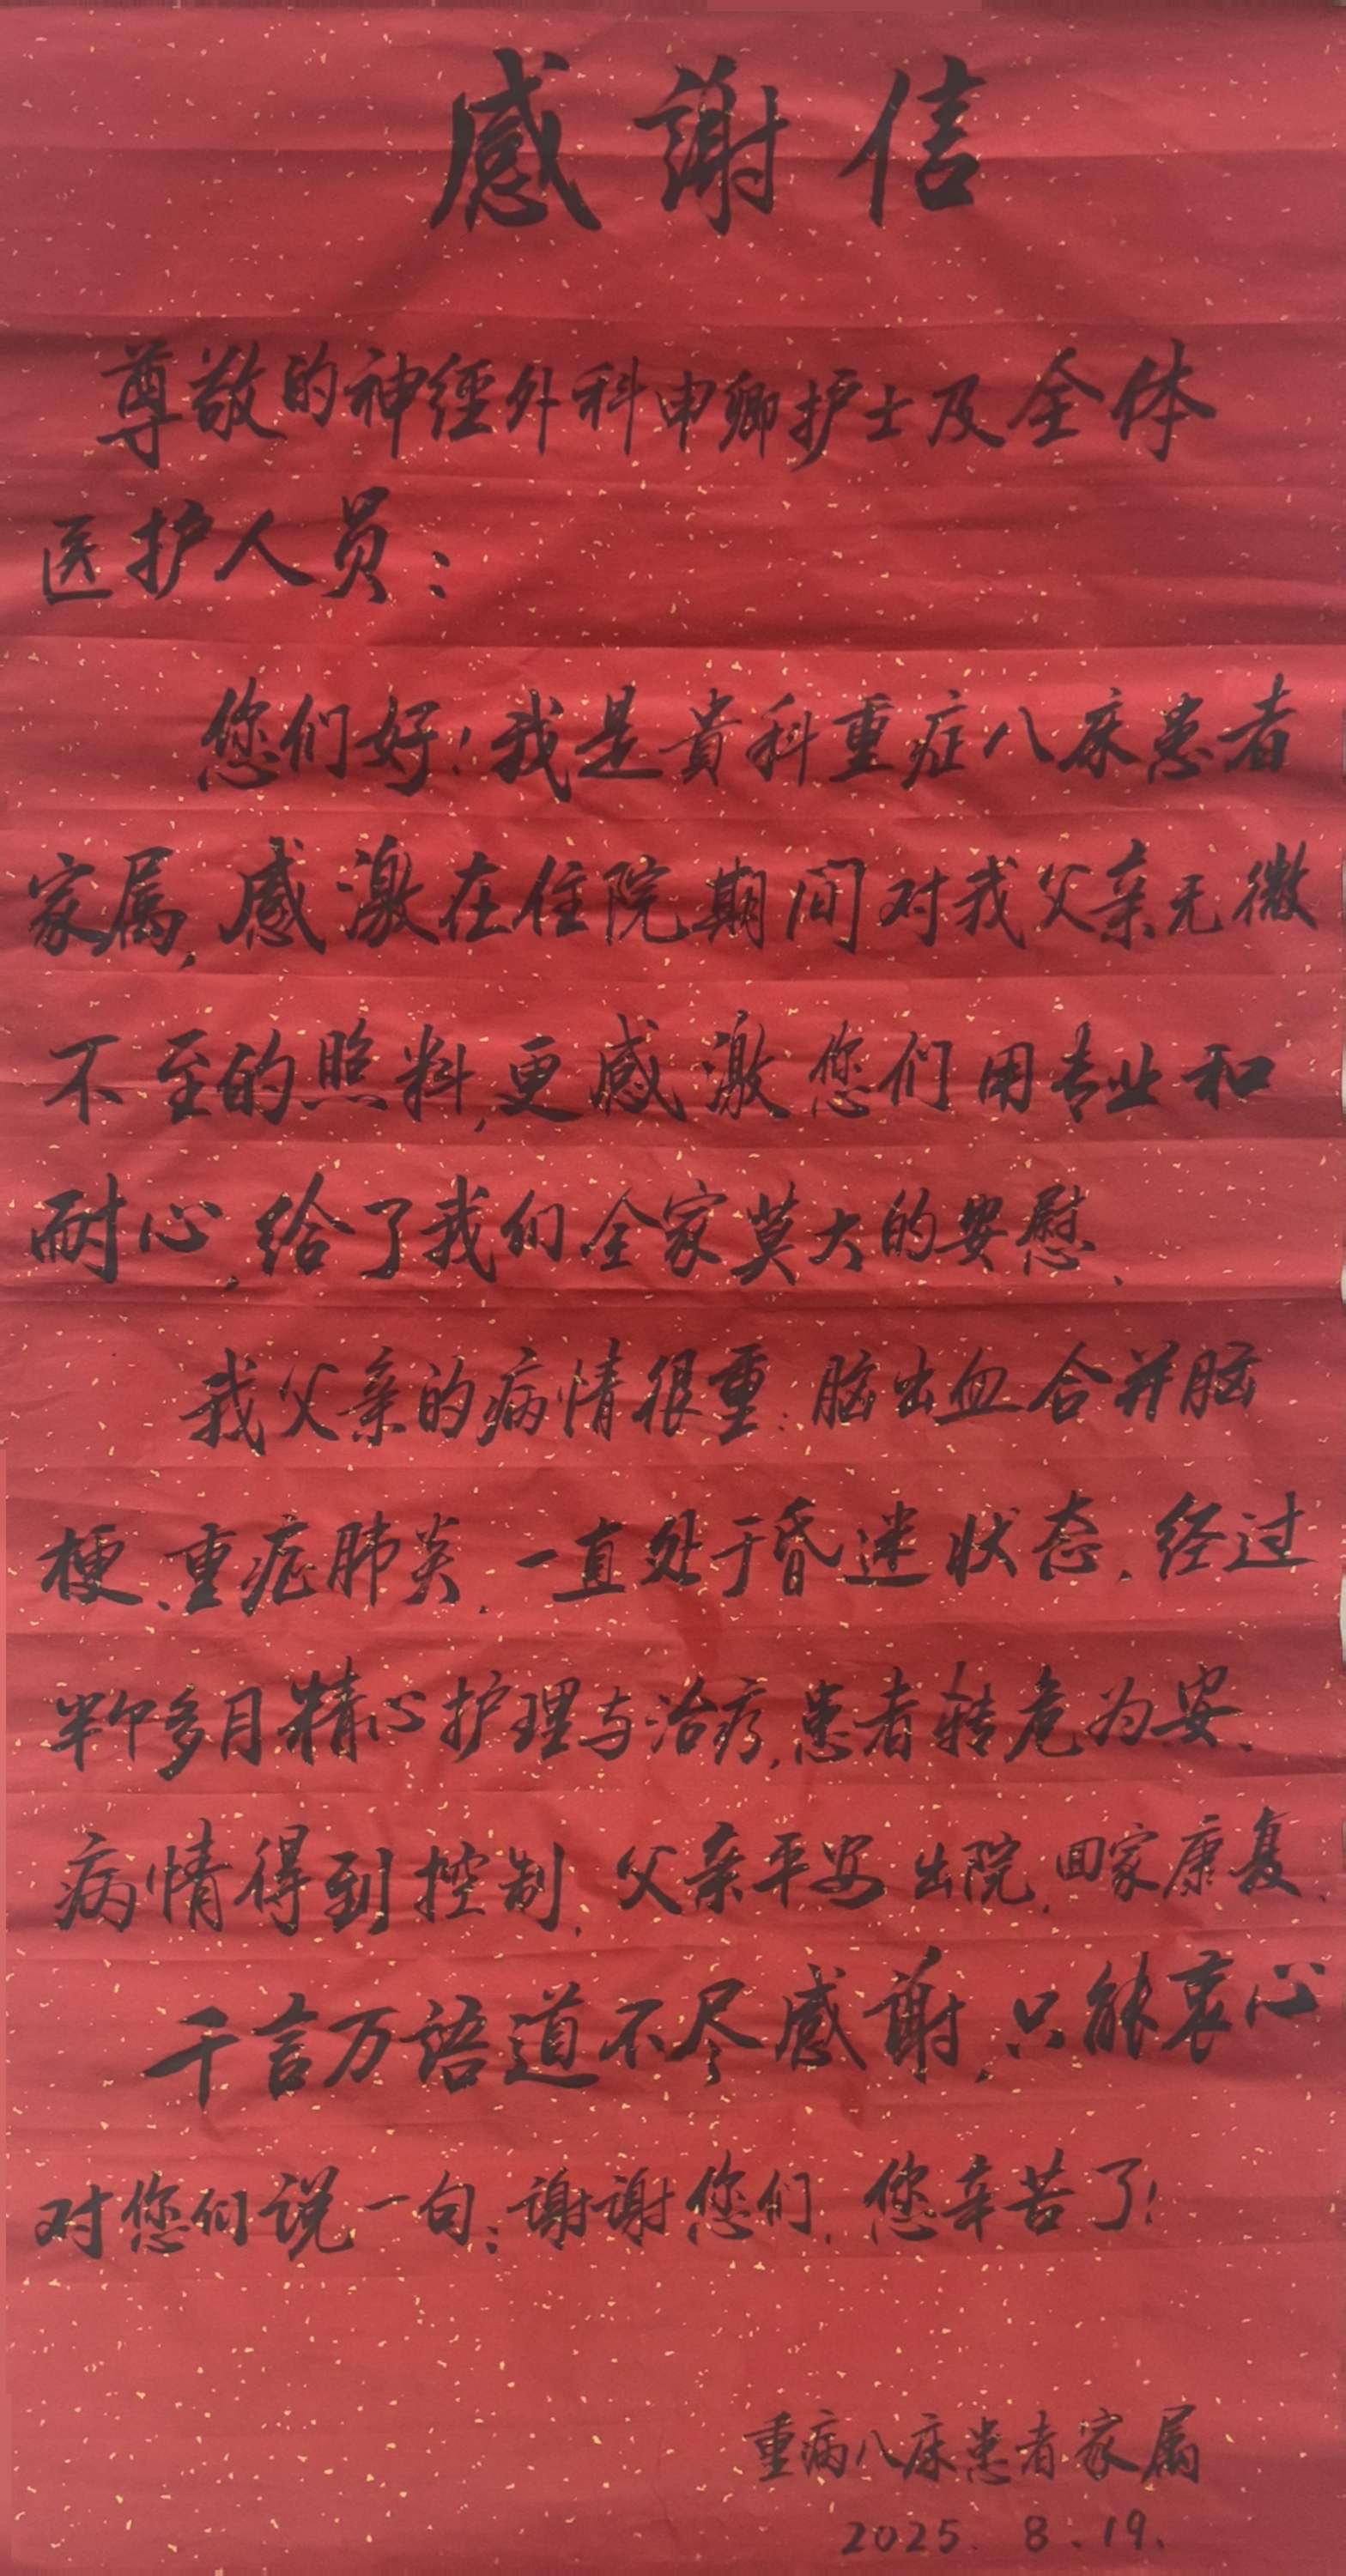 感謝信
尊敬的神經外科申卿护士及全体
医护人员：
您们好！我是貴科重症八床患者
家属，感激在住院期间对我父亲无微
不至的照料，更感激您们用专业和
耐心，给了我们全家莫大的安慰。
我父亲的病情很重：脑出血合并脑
梗、重症肺炎，一直处于昏迷状态，经过
半个多月精心护理与治疗，患者转危为安、
病情得到控制，父亲平安出院，回家康复。
千言万语道不尽感謝，只能衷心
对您们说一句：谢谢您们，您辛苦了！
重病八床患者家属
2025.8.19.